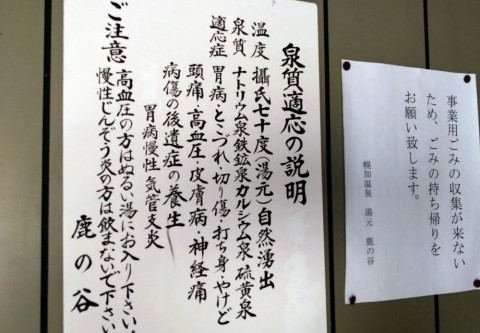 泉質適応の説明
温度 攝氏七十度(湯元)自然湧出
泉質 ナトリウム泉鉄鉱泉カルシウム泉 硫黄泉
適応症 胃病・とこづれ・切り傷・打ち身・やけど
頭痛・高血圧・皮膚病・神経痛
病傷の後遺症の養生
胃病慢性気管支炎
ご注意 高血圧の方はぬるい湯にお入り下さい。
慢性じんぞう炎の方は飲まないで下さい
鹿の谷
事業用ごみの収集が来ない
ため、ごみの持ち帰りを
お願い致します。
幌加温泉 湯元 鹿の谷